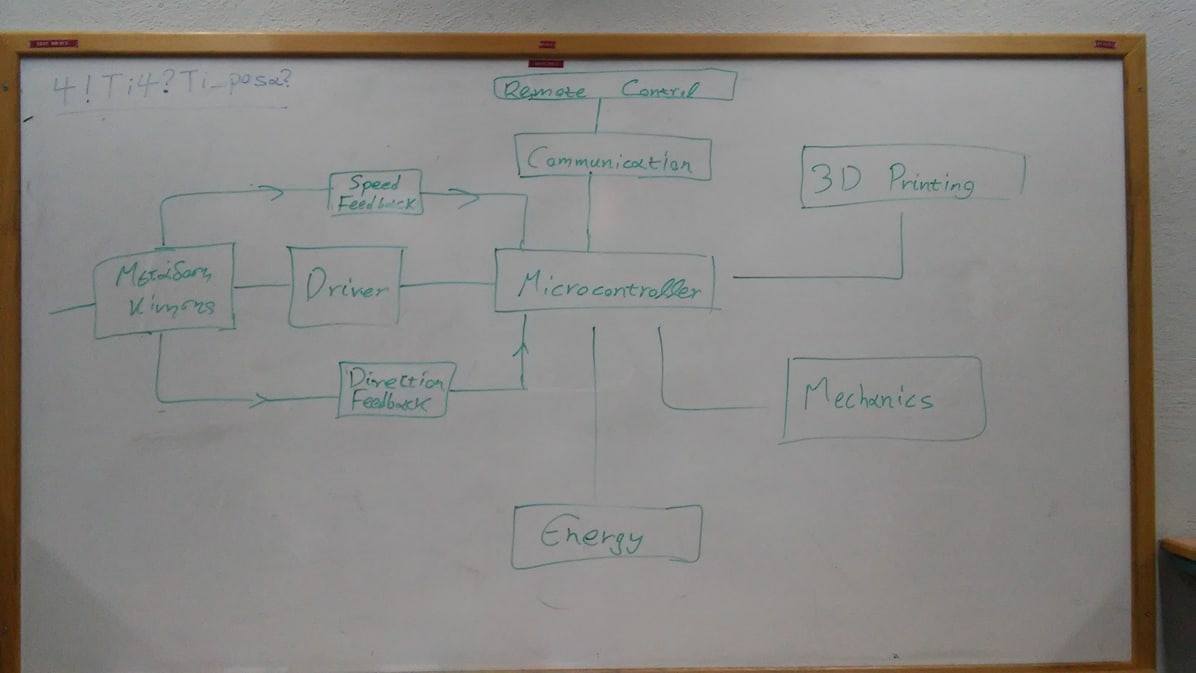 4!Ti4?Ti_posa?
Remote Control
Communication
3D Printing
Speed
Feedback
Μετάδοση
Κίνησης
Driver
Microcontroller
Direction
Feedback
Mechanics
Energy